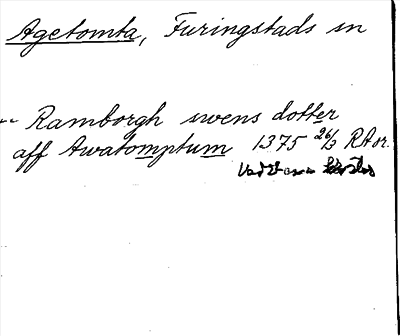 Agetomta, Furingstads sn
-- Ramborgh swens dotter
aff Awatomptum 1375 26/3 RA or.
Vadstena kloster